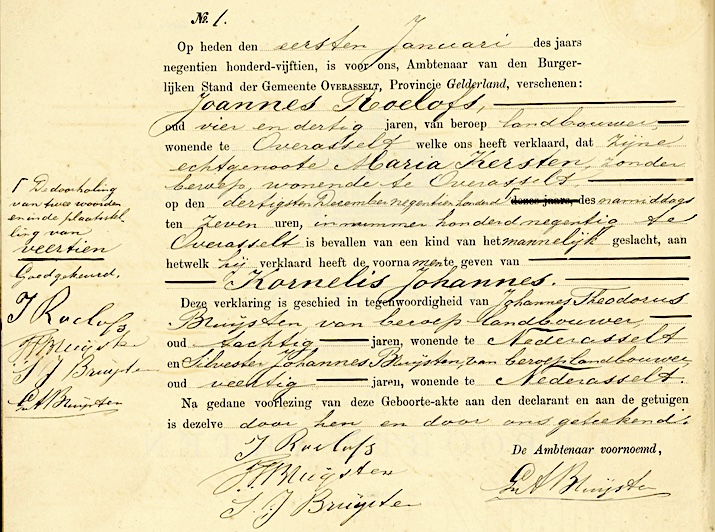 No. 1.
Op heden den eersten Januari des jaars
negentien honderd-vijftien, is voor ons, Ambtenaar van den Burger-
lijken Stand der Gemeente OVERASSELT, Provincie Gelderland, verschenen:
Joannes Roelofs,
oud vier en dertig jaren, van beroep landbouwer,
wonende te Overasselt welke ons heeft verklaard, dat zijne
echtgenoote Maria Kersten, zonder
beroep, wonende te Overasselt
op den dertigsten December negentien honderd ⌈ dezes jaars, des namiddags
ten zeven uren, in nummer honderd negentig te
Overasselt is bevallen van een kind van het mannelijk geslacht, aan
hetwelk hij verklaard heeft de voornamente geven van
Kornelis Johannes.
Deze verklaring is geschied in tegenwoordigheid van Johannes Theodorus
Bruijsten, van beroep landbouwer,
oud tachtig jaren, wonende te Nederasselt
en Silvester Johannes Bruijsten, van beroep landbouwer
oud veertig jaren, wonende te Nederasselt.
Na gedane voorlezing van deze Geboorte-akte aan den declarant en aan de getuigen
is dezelve door hen en door ons geteekend.
J Roelofs
Bruijsten
S. J Bruijsten
De Ambtenaar voornoemd,
Bruijsten
⌈ De doorhaling
van twee woorden
en in de plaatsstel
ling van
veertien
Goedgekeurd,
J Roelofs
Bruijsten
S J Bruijsten
Bruijsten